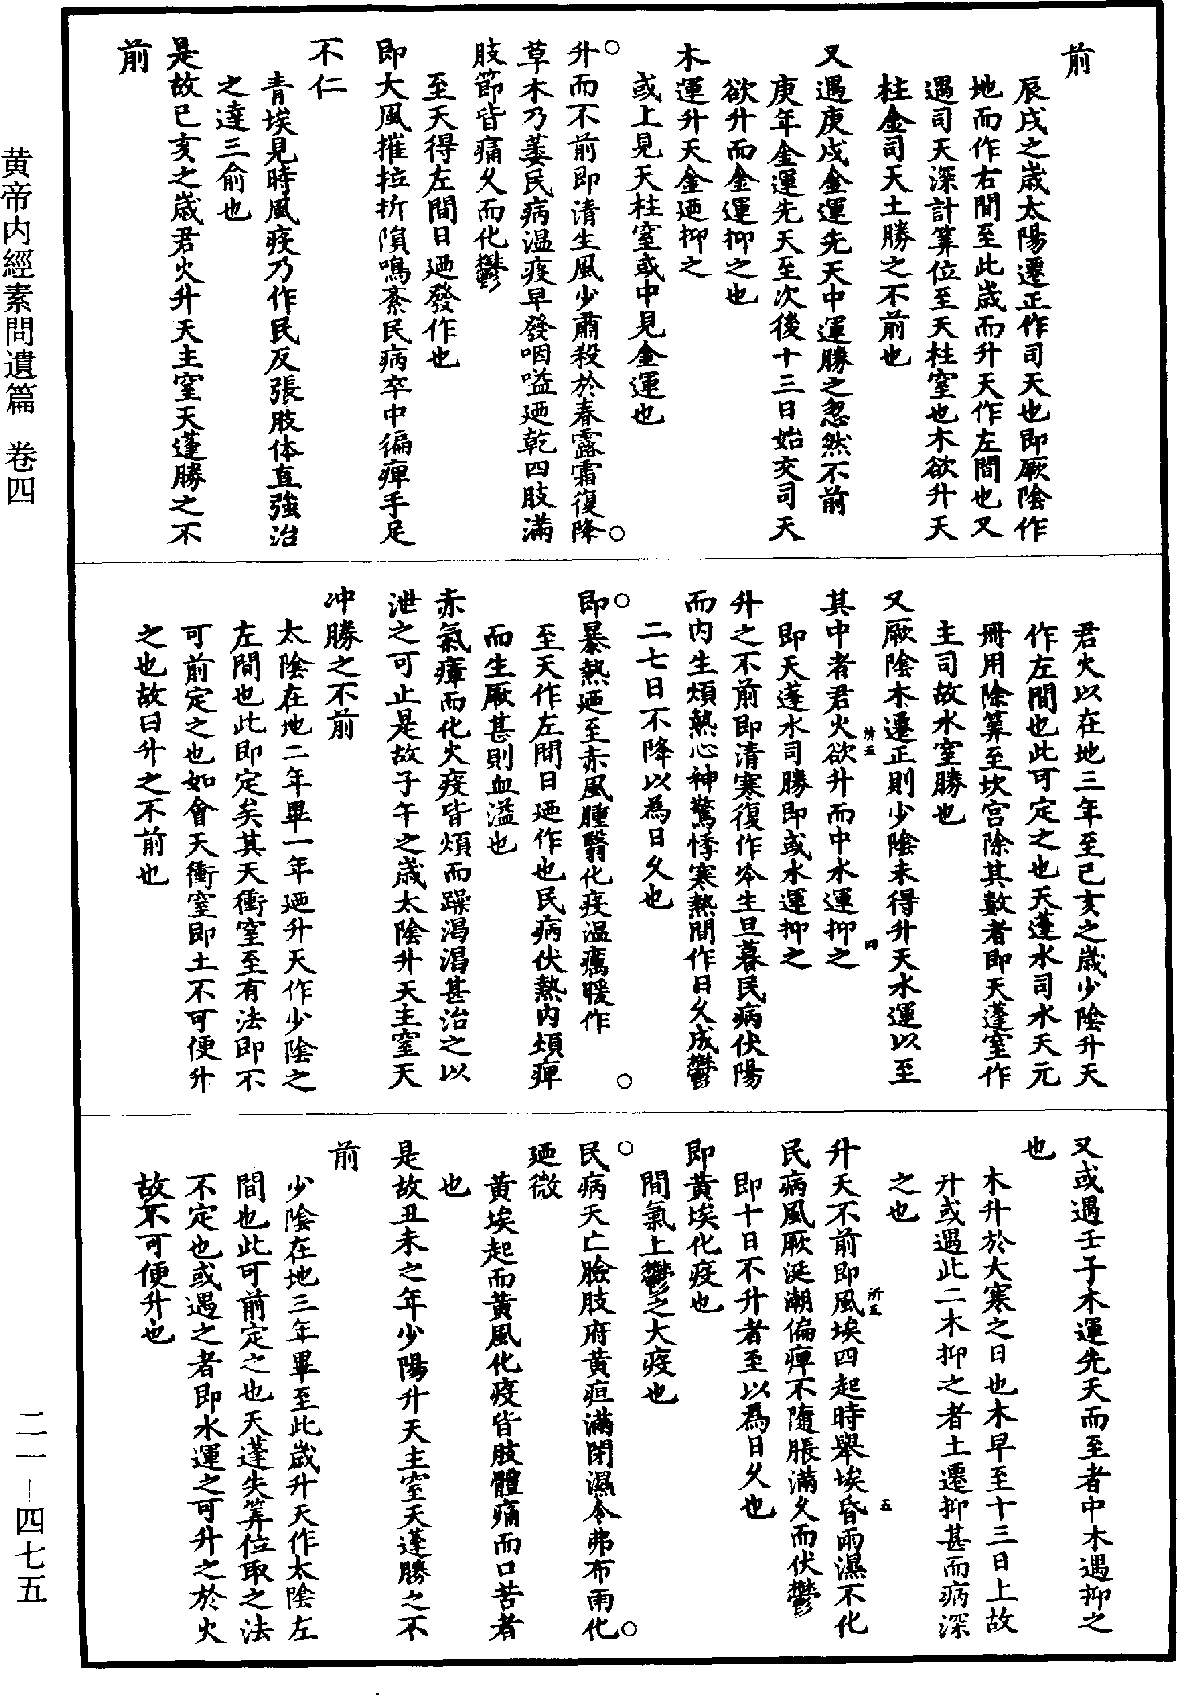 前
辰戌之歲太陽遷正作司天也即厥陰作
地而作右間至此歲而升天作左間也又
遇司天深計筭位至天柱窒也木欲升天
柱金司天土勝之不前也
又遇庚戌金運先天中運勝之忽然不前
庚年金運先天至次後十三日始交司天
欲升而金運抑之也
木運升天金廼抑之
或上見天柱窒或中見金運也
升而不前即清生風少肅殺於春露霜復降
草木乃萎民病温疫早發咽嗌廼乾四肢滿
肢節皆痛久而化鬱
至天得左間日廼發作也
即大風摧拉折隕鳴紊民病卒中偏痺手足
不仁
青埃見時風疫乃作民反張肢体直強治
之達三俞也
是故已亥之歲君火升天主窒天蓬勝之不
前
君火以在地三年至已亥之歲少陰升天
作左間也此可定之也天蓬水司水天元
冊用除筭至坎宫除其數者即天蓬窒作
主司故水窒勝也
又厥陰木遷正則少陰未得升天水運以至
其中者君火欲升而中水運抑之
即天蓬水司勝即或水運抑之
升之不前即清寒復作冷生旦暮民病伏陽
而内生煩熱心神驚悸寒熱間作日久成鬱
二七日不降以為日久也
即暴熱廼至赤風腫翳化疫温癘暖作
至天作左間日廼作也民病伏熱内煩痺
而生厥甚則血溢也
赤氣瘴而化火疫皆煩而躁渴渴甚治之以
泄之可止是故子午之歲太陰升天主窒天
冲勝之不前
太陰在地二年畢一年廼升天作少陰之
左間也此即定矣其天衝窒至有法即不
可前定之也如會天衝窒即土不可便升
之也故曰升之不前也
又或遇壬子木運先天而至者中木遇抑之
也
木升於大寒之日也木早至十三日上故
升或遇此二木抑之者土遷抑甚而病深
之也
升天不前即風埃四起時舉埃昏雨濕不化
民病風厥涎潮偏痺不隨脹滿久而伏鬱
即十日不升者至以為日久也
即黄埃化疫也
間氣上鬱之大疫也
民病夭亡臉肢府黄疸滿閉濕令弗布雨化
廼微
黄埃起而黄風化疫皆肢體痛而口苦者
也
是故丑未之年少陽升天主窒天蓬勝之不
前
少陰在地三年畢至此歲升天作太陰左
間也此可前定之也天蓬失筭位取之法
不定也或遇之者即水運之可升之於火
故不可便升也
黄帝内經素問遺篇 卷四
二一-四七五